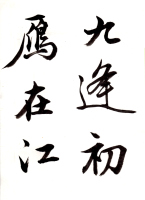 九逢初
雁在江